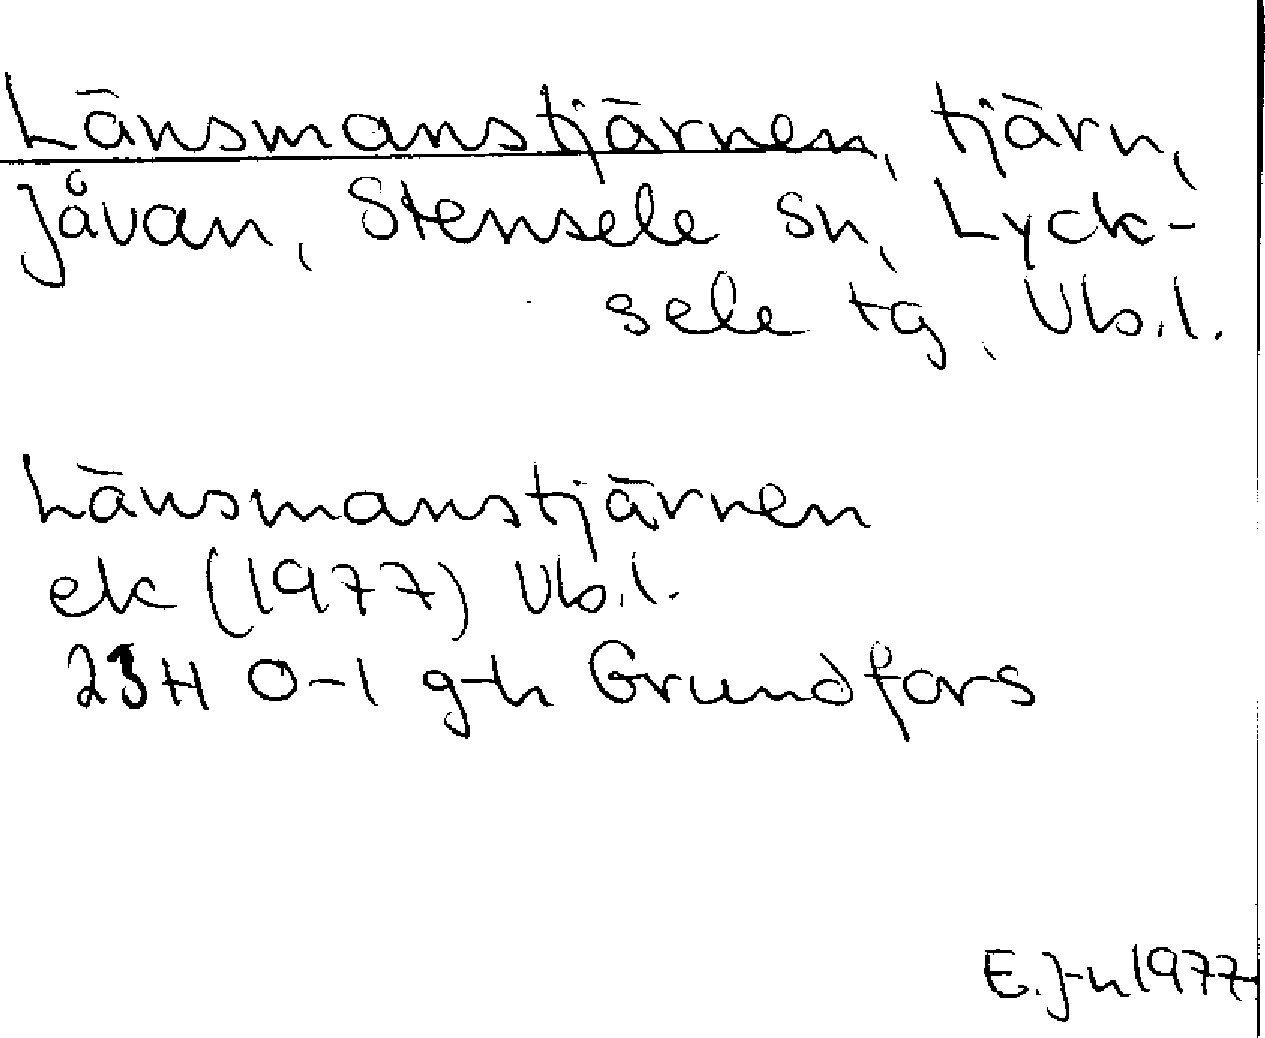 Länsmanstjärnen, tjärn,
Jåvan, Stensele sn, Lyck-
sele tg, Vb.l.
Länsmanstjärnen
ek (1977) Vb.l.
23H 0-1 g-h Grundfors
E.J-n 1977